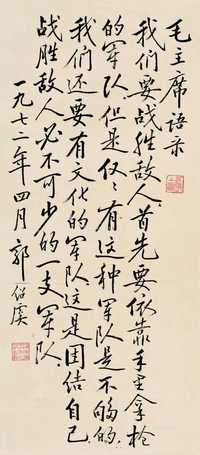 毛主席语录
我们要战胜敌人首先要依靠手里拿枪
的军队但是仅仅有这种军队是不够的
我们还要有文化的军队这是团结自己
战胜敌人必不可少的一支军队
一九七二年四月 郭绍虞